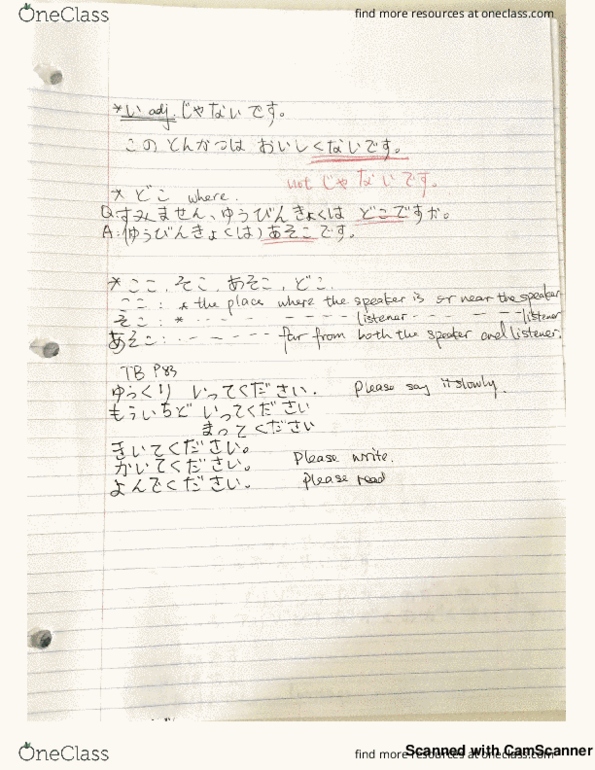 OneClass
find more resources at oneclass.com
*い adj. じゃないです。
このとんかつは おいしくないです。
not じゃないです。
* どこ where.
Q:すみません、ゆうびんきょくは どこですか。
A:(ゆうびんきょくは)あそこです。
*ここ,そこ,あそこ,どこ.
ここ: * the place where the speaker is or near the speaker
そこ: * - - - - - - - - listener - - - - - - listener
あそこ: - - - - - - - far from both the speaker and listener.
TB P83
ゆっくり いってください. Please say it slowly.
もういちど いってください
まってください
きいてください。
かいてください。 Please write.
よんでください。 please read
OneClass
find more resources at oneclass.com
Scanned with CamScanner